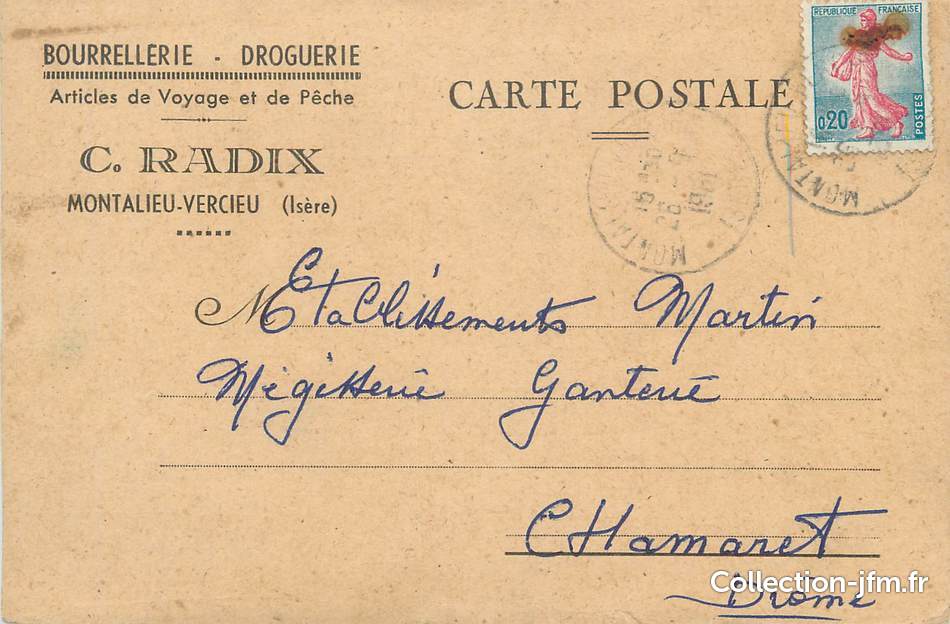 BOURRELLERIE - DROGUERIE
Articles de Voyage et de Pêche
C. RADIX
MONTALIEU-VERCIEU (Isère)
CARTE POSTALE
REPUBLIQUE FRANÇAISE
0,20
POSTES
M Etablissements Martin
Mégisserie Ganterie
CHamaret
Drôme
Collection-jfm.fr